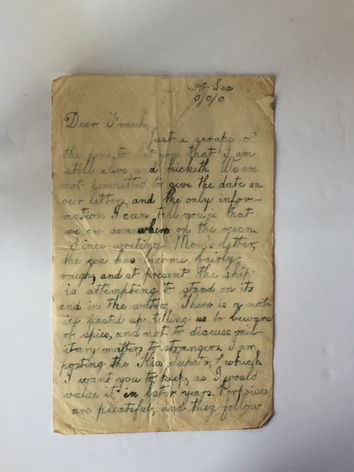 At Sea
0/0/0
Dear
Just a scrape o'
the pen, to let you that I am
still alive and kicketh. We are
not permitted to give the date on
our letters, and the only infor-
mation I can tell you is that
we are somewhere on the ocean.
Since writing Mom's letter,
the sea has become fairly
rough, and at present the ship
is attempting to stand on its
end in the water. There is a not-
ice posted up telling us to beware
of spies, and not to discuss mil-
itary matters to strangers. I am
posting the which
I want you to keep, as I would
value it in later years. Porpoises
are plentiful, and they follow